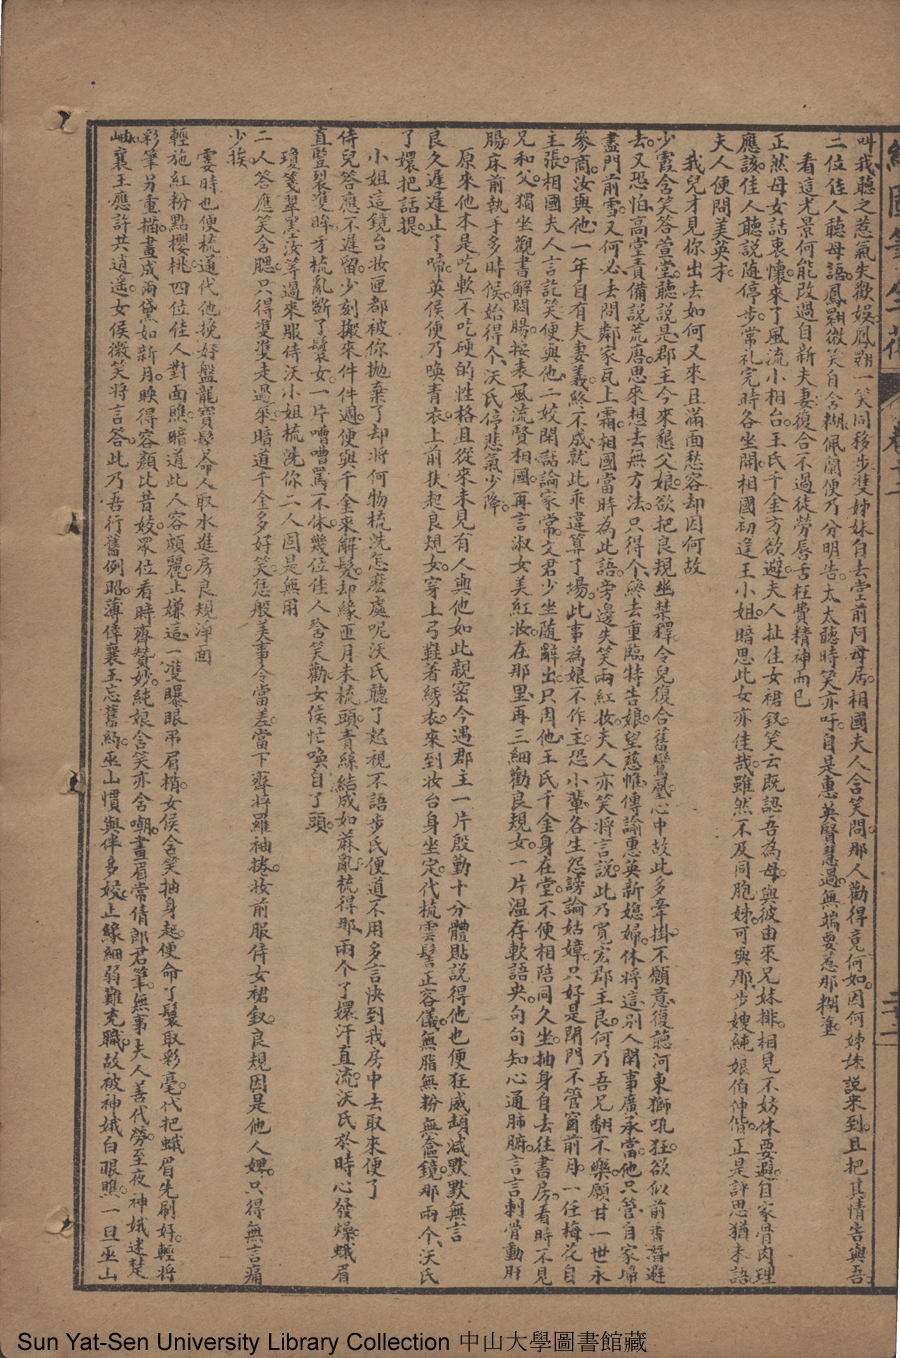 叫我聽之惹氣失歡娛鳳翾一笑同移步雙姊妹自去堂前阿母居相國夫人含笑問那人勸得竟何如因何姊妹說來到且把其情告與吾
二位佳人聽母語鳳翾微笑自含糊佩蘭便乃分明告太太聽時笑亦吁自是惠英賢慧過無端要惹那糊塗
看這光景何能改過自新夫妻復合不過徒勞唇舌枉費精神而已
正然母女話衷懷來了風流小相台王氏千金方欲避夫人扯住女裙釵笑云既認吾為母與彼由來兄妹排相見不妨休要避自家骨肉理
應該佳人聽說隨停步常礼完時各坐開相國初逢王小姐暗思此女亦佳哉雖然不及同胞姊可與那步嫂純娘伯仲偕正是評思猶未語
夫人便問美英才
我兒才見你出去如何又來且滿面愁容却因何故
少霞含笑答萱堂聽說是郡主今來懇父娘欲把良規幽禁釋令兒復合舊鸞凰心中故此多牽掛不願意復聽河東獅吼狂欲似前番潛避
去又恐怕高堂責備說荒唐思來想去無方法只得個終去重臨特告娘望慈幃傳諭惠英新媳婦休將這別人閑事廣承當他只管自家埽
盡門前雪又何必去問鄰家瓦上霜相國當時為此語旁邊失笑兩紅妝夫人亦笑將言說此乃寬宏郡主良何乃吾兒翻不樂願甘一世永
參商汝與他一年自有夫妻義終不成就此乖違算了場此事為娘不作主恐小輩各生怨謗論姑嫜只好是閉門不管窗前月一任梅花自
主張相國夫人言訖笑便與他二妏閑話論家常文君少坐隨辭出只因他王氏千金身在堂不便相陪同久坐抽身自去往書房看時不見
兄和父獨坐觀書解悶腸按表風流賢相國再言淑女美紅妝在那里再三細勸良規女一片溫存軟語央句句知心通肺腑言言刺骨動肝
腸床前執手多時候始得個沃氏停悲氣少降
原來他本是吃軟不吃硬的性格且從來未見有人與他如此親密今遇郡主一片殷勤十分體貼說得他也便狂威頓減默默無言
良久遲遲止了啼英侯便乃喚青衣上前扶起良規女穿上弓鞋著綉衣來到妝台身坐定代梳雲髻正容儀無脂無粉無奩鏡那兩個沃氏
了嬛把話提
小姐這鏡台妝匣都被你拋棄了却將何物梳洗怎麽處呢沃氏聽了起視不語步氏便道不用多言快到我房中去取來便了
侍兒答應不遲留少刻搬來件件週便與千金來解髮却緣匝月未梳頭青絲結成如蔴亂梳得那兩个了嬛汗直流沃氏於時心發燥蛾眉
直豎裂雙眸牙梳亂斷了鬟女一片嘈嘈罵不休幾位佳人含笑勸女侯忙喚自了頭
瓊箋翠墨汝等過來服侍沃小姐梳洗你二人因是無用
二人答應笑含腮只得雙雙走過來暗道千金多好笑怎般美事令當差當下齊將羅袖捲妝前服侍女裙釵良規因是他人婢只得無言痛
少挨
霎時也便梳通代他挽好盤龍寶髻命人取水進房良規淨面
輕施紅粉點櫻桃四位佳人對面瞧暗道此人容頗麗止嫌這一雙曝眼吊眉梢女侯含笑抽身起便命了鬟取彩毫代把蛾眉先刷好輕將
彩筆另重描畫成兩黛如新月映得容顏比昔妏眾位看時齊贊妙純娘含笑亦含嘲畫眉常倩郎君筆無事夫人善代勞至夜神娥迷楚
岫襄王應許共逍遙女侯微笑將言答此乃吾行舊例昭薄倖襄王忘舊約巫山慣與伴多姣止緣細弱難充職故被神娥白眼瞧一旦巫山
筆生花
卷十二
Sun Yat-Sen University Library Collection 中山大學圖書館藏